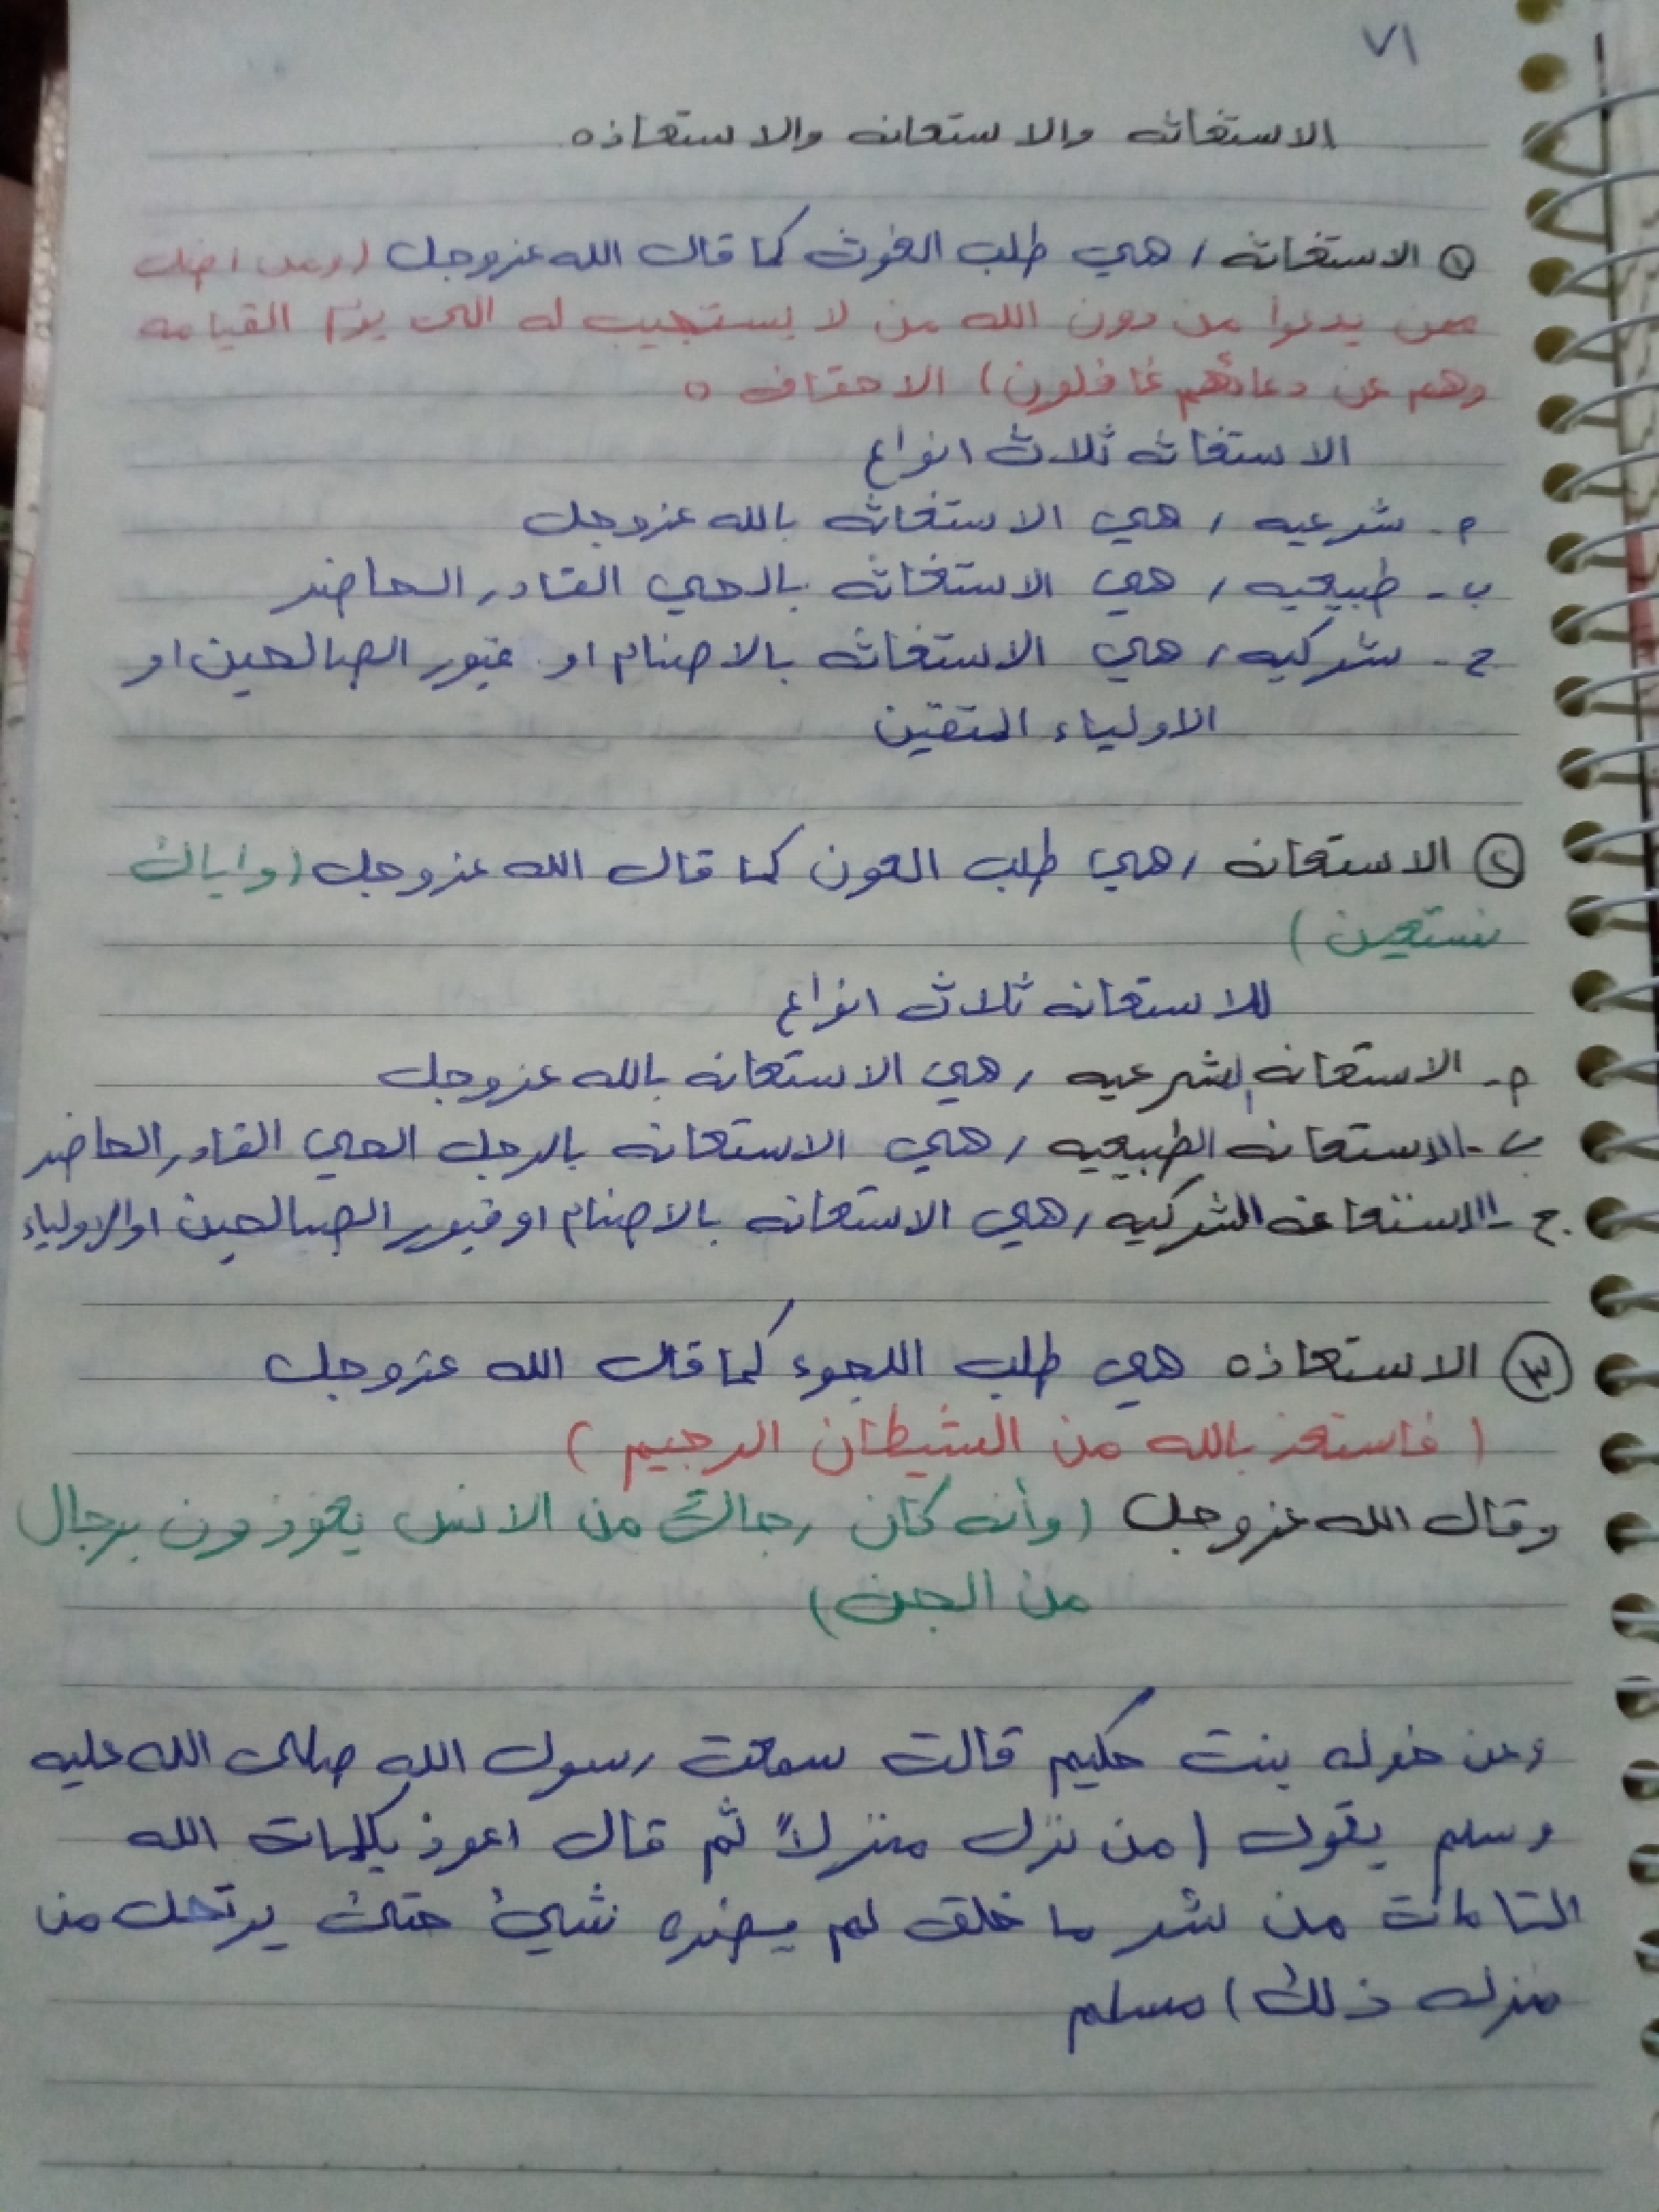 ٧١
الاستغاثه والاستعانه والاستعاذه
١ الاستغاثه / هي طلب الغوث كما قال الله عزوجل (ومن اضل
ممن يدعوا من دون الله من لا يستجيب له الى يوم القيامه
وهم عن دعائهم غافلون) الاحقاف ٥
الاستغاثه ثلاث انواع
م - شرعيه / هي الاستغاثه بالله عزوجل
ب - طبيعيه / هي الاستغاثه بالحي القادر الحاضر
ج - شركيه / هي الاستغاثه بالاصنام او قبور الصالحين او
الاولياء المتقين
٢ الاستعانه / هي طلب العون كما قال الله عزوجل (واياك
نستعين)
للاستعانه ثلاث انواع
م - الاستعانه الشرعيه / هي الاستعانه بالله عزوجل
ب - الاستعانه الطبيعيه / هي الاستعانه بالرجل الحي القادر الحاضر
ج - الاستعانه الشركيه / هي الاستعانه بالاصنام او قبور الصالحين او الاولياء
٣ الاستعاذه هي طلب اللجوء كما قال الله عزوجل
(فاستعذ بالله من الشيطان الرجيم)
وقال الله عزوجل (وأنه كان رجال من الانس يعوذون برجال
من الجن)
وعن خوله بنت حكيم قالت سمعت رسول الله صلى الله عليه
وسلم يقول (من نزل منزلاً ثم قال اعوذ بكلمات الله
التامات من شر ما خلق لم يضره شيئ حتى يرتحل من
منزله ذلك) مسلم